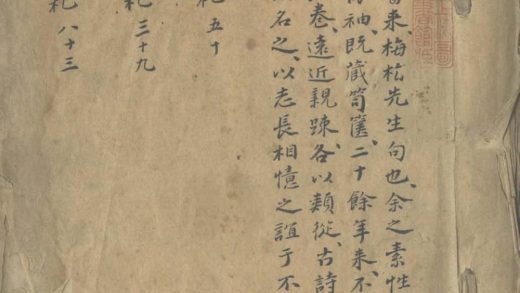 當來、梅松先生句也、余之素性
袖、既藏笥篋、二十餘年来、不
卷、遠近親踈、各以類從、古詩
名之、以志長相憶之誼于不
札五十
札三十九
札八十三